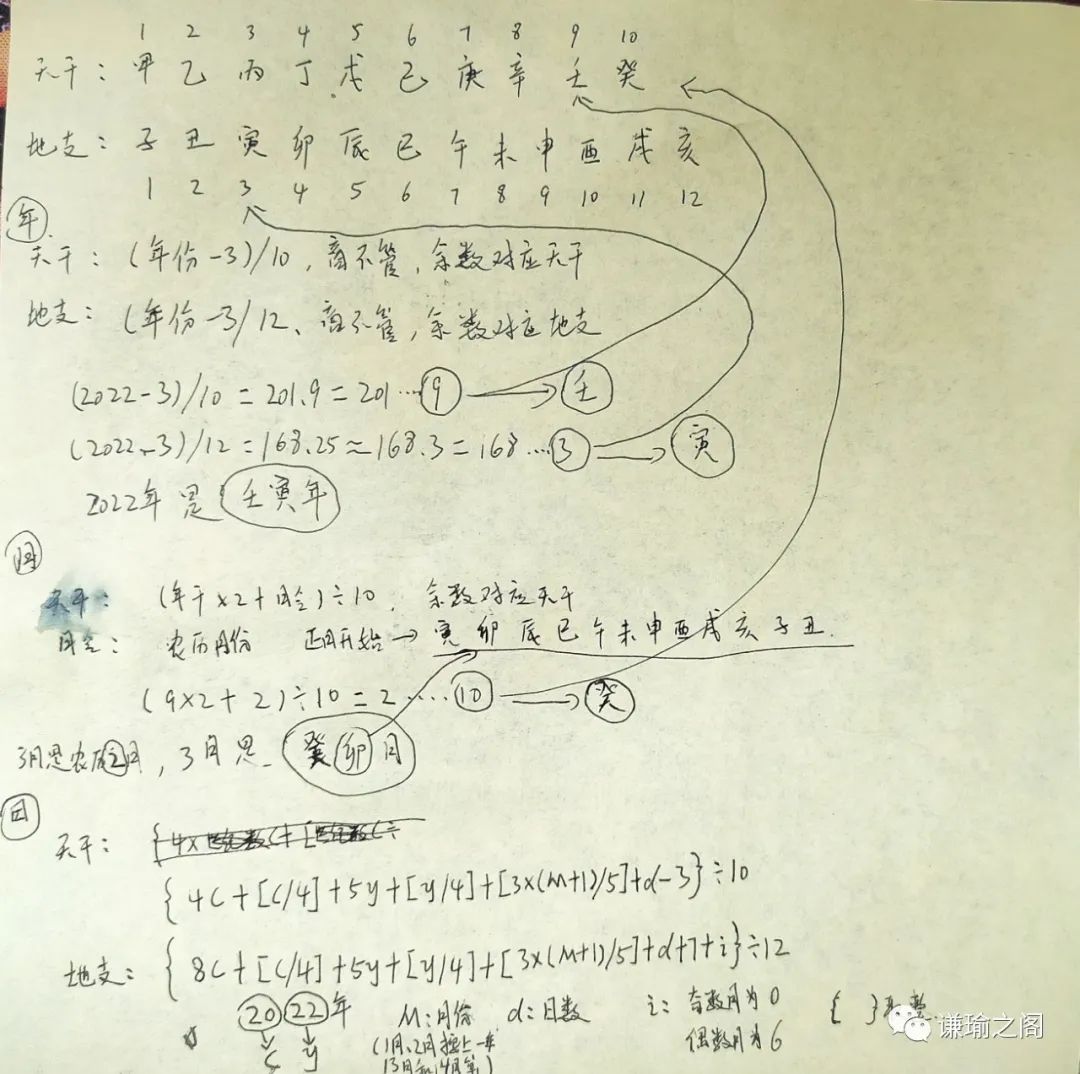 1 2 3 4 5 6 7 8 9 10
天干: 甲 乙 丙 丁 戊 己 庚 辛 壬 癸
地支: 子 丑 寅 卯 辰 巳 午 未 申 酉 戌 亥
1 2 3 4 5 6 7 8 9 10 11 12
年
天干: (年份-3)/10, 商不管, 余数对应天干
地支: (年份-3/12、商不管, 余数对应地支
(2022-3)/10=201.9=201…9 → 壬
(2022-3)/12=168.25≈168.3=168…3 → 寅
2022年是 壬寅年
月
天干: (年干×2+月令)÷10, 余数对应天干
月令: 农历月份 正月开始→ 寅 卯 辰 巳 午 未 申 酉 戌 亥 子 丑.
(9×2+2)÷10=2……10 → 癸
3月是农历2月, 3月是 癸卯月
日
天干:
{4C+[C/4]+5y+[y/4]+[3×(M+1)/5]+d-3}÷10
地支: {8C+[C/4]+5y+[y/4]+[3×(M+1)/5]+d+7+i}÷12
20 22年 M:月份 d:日数 i:奇数月为0 { }
C y (1月、2月按上一年 偶数月为6
13月和14月算)
谦瑜之阁